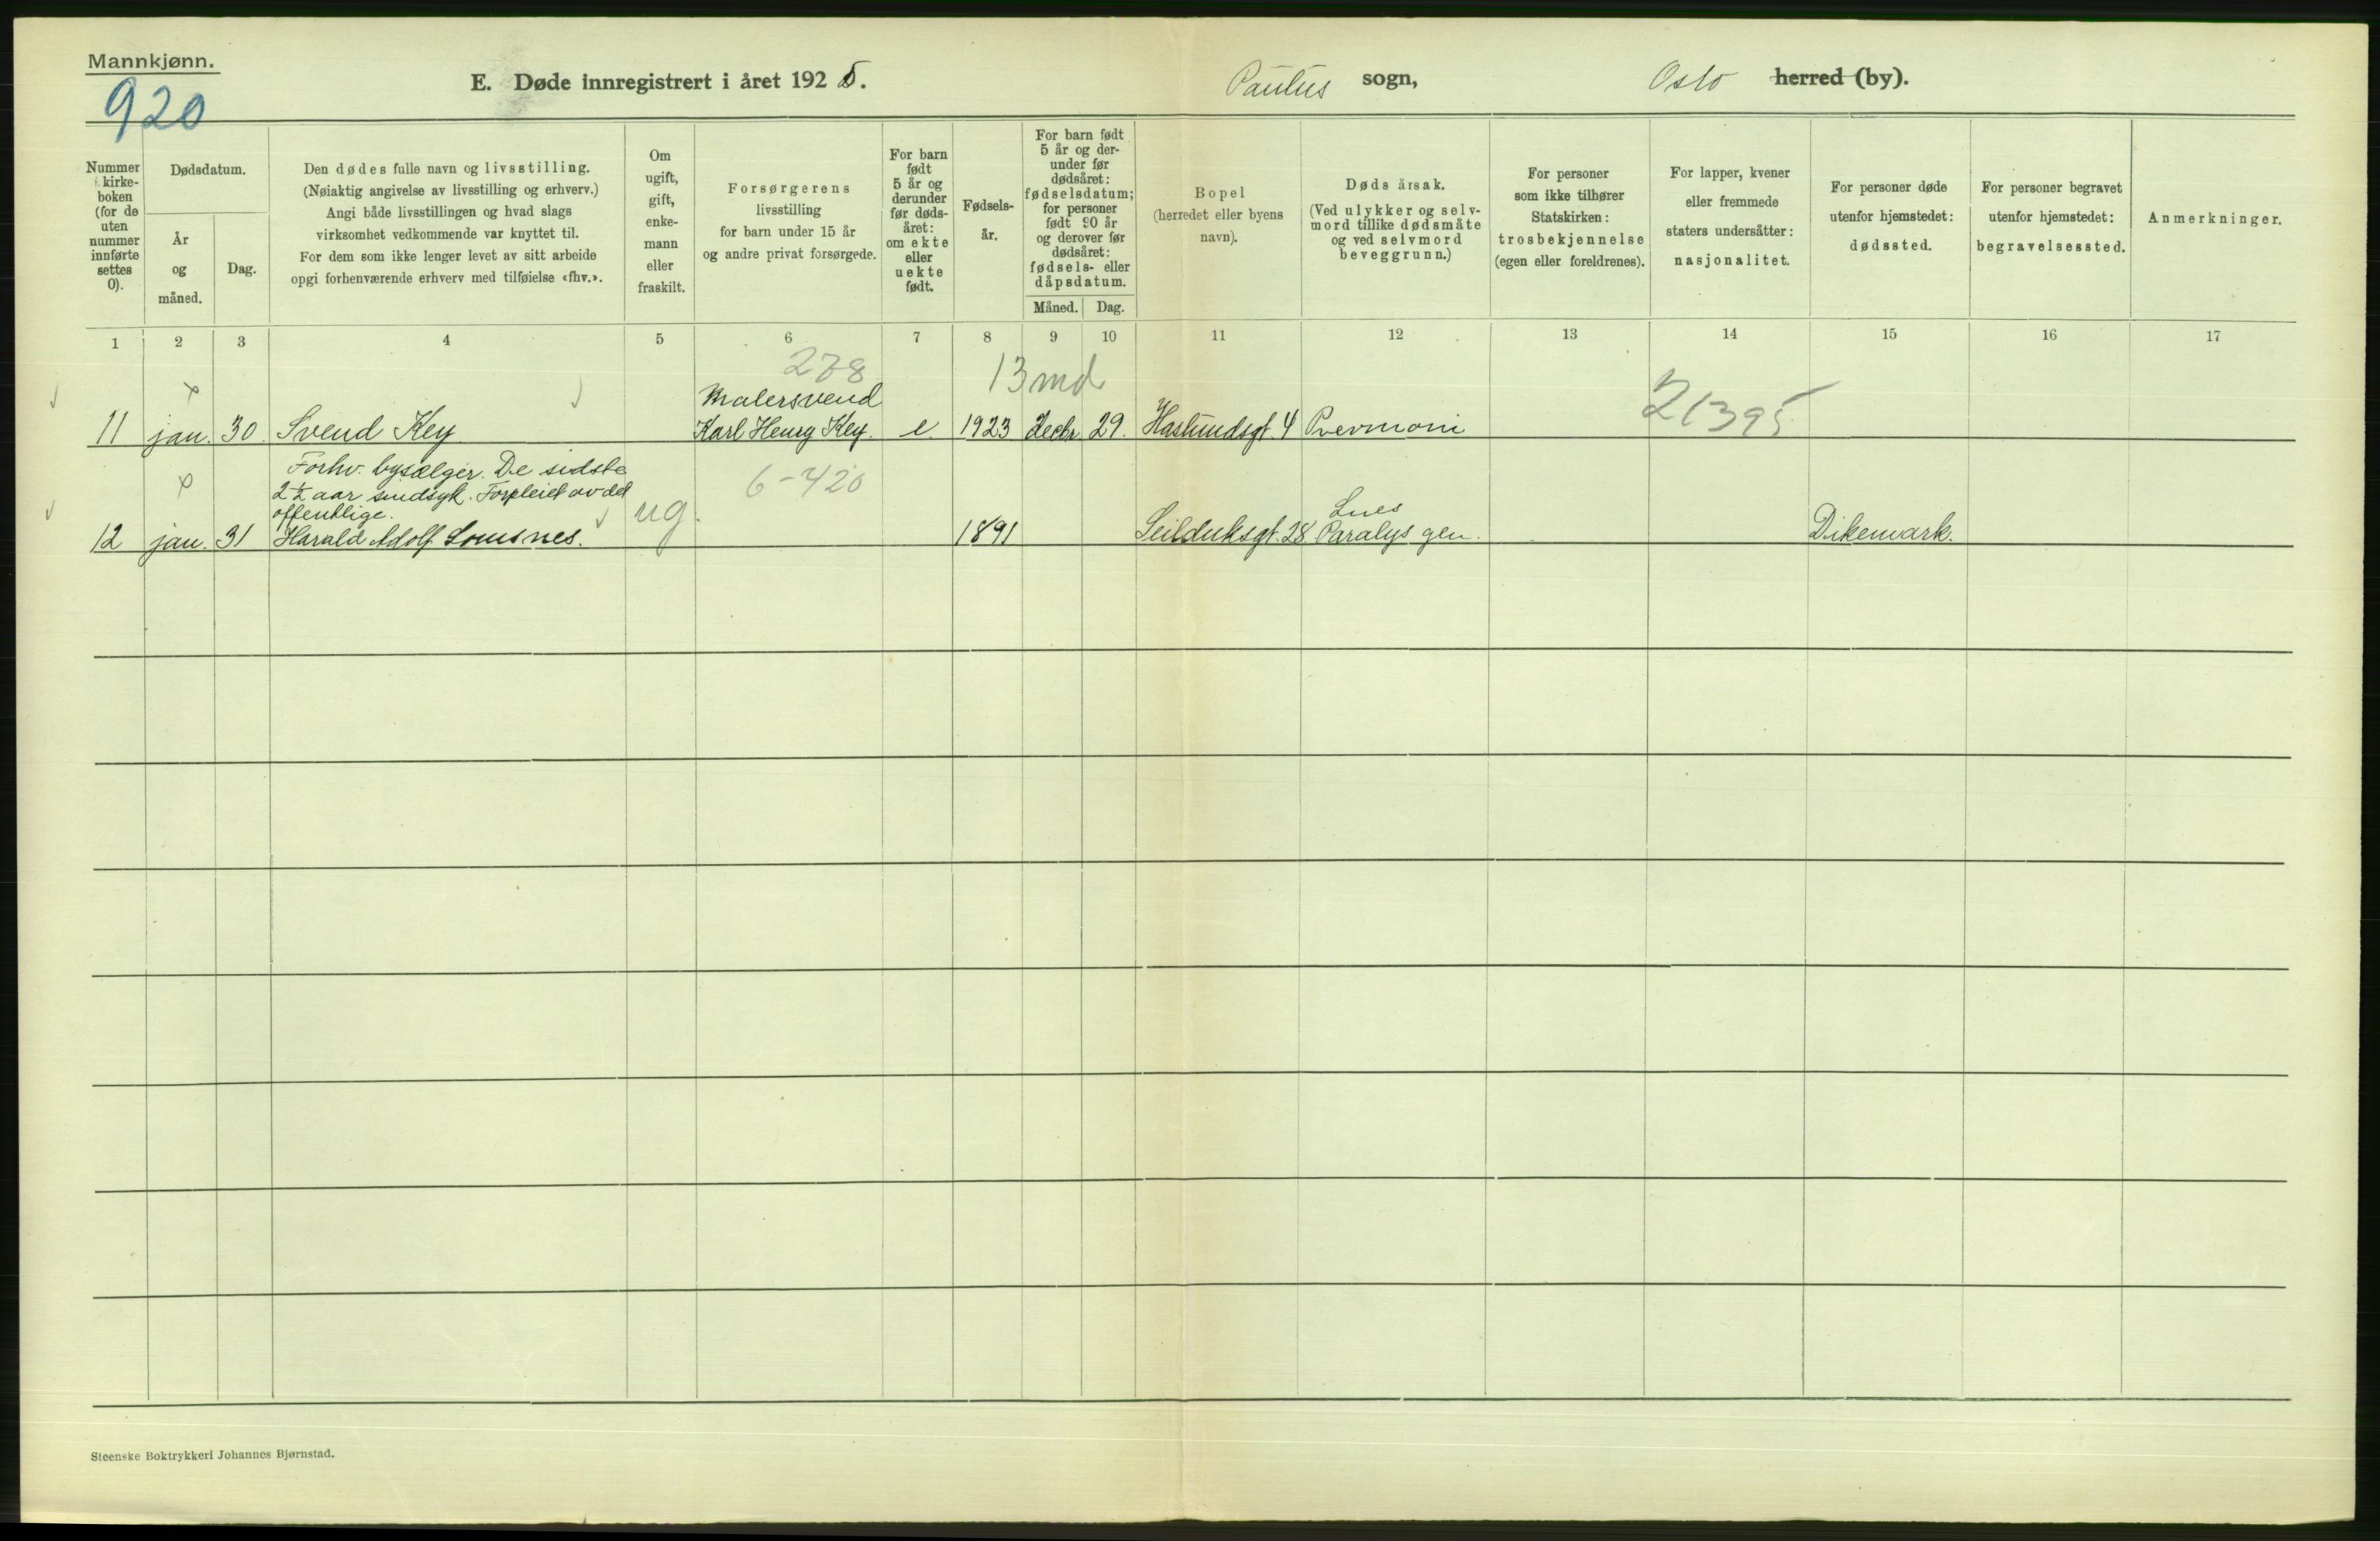 Mannkjønn.
920
E. Døde innregistrert i året 1925.
Paulus sogn,
Oslo herred (by).
Nummer
i kirke-
boken
(for de
uten
nummer
innførte
settes
0).
Dødsdatum.
År
og
måned.
Dag.
Den dødes fulle navn og livsstilling.
(Nøiaktig angivelse av livsstilling og erhverv.)
Angi både livsstillingen og hvad slags
virksomhet vedkommende var knyttet til.
For dem som ikke lenger levet av sitt arbeide
opgi forhenværende erhverv med tilføielse «fhv.».
Om
ugift,
gift,
enke-
mann
eller
fraskilt.
Forsørgerens
livsstilling
for barn under 15 år
og andre privat forsørgede.
For barn
født
5 år og
derunder
før døds-
året:
om ekte
eller
uekte
født.
Fødsels-
år.
For barn født
5 år og der-
under før
dødsåret:
fødselsdatum;
for personer
født 90 år
og derover før
dødsåret:
fødsels- eller
dåpsdatum.
Måned.
Dag.
Bopel
(herredet eller byens
navn).
Dødsårsak.
(Ved ulykker og selv-
mord tillike dødsmåte
og ved selvmord
beveggrunn.)
For personer
som ikke tilhører
Statskirken:
trosbekjennelse
(egen eller foreldrenes).
For lapper, kvener
eller fremmede
staters undersåtter:
nasjonalitet.
For personer døde
utenfor hjemstedet:
dødssted.
For personer begravet
utenfor hjemstedet:
begravelsessted.
Anmerkninger.
1 2 3 4 5 6 7 8 9 10 11 12 13 14 15 16 17
278
13 md
21395
Malersvend
11 jan. 30. Svend Key Karl Henry Key. e. 1923 Decbr. 29. Haslundsgt. 4 Pnevmoni
Forhv. bysælger. De sidste
2½ aar sindsyk. Forpleiet av det
offentlige.
6-420
Lues
12 jan. 31 Harald Adolf ug. 1891 Seilduksgt. 28. Paralys gen. Dikemark.
Steenske Boktrykkeri Johannes Bjørnstad.